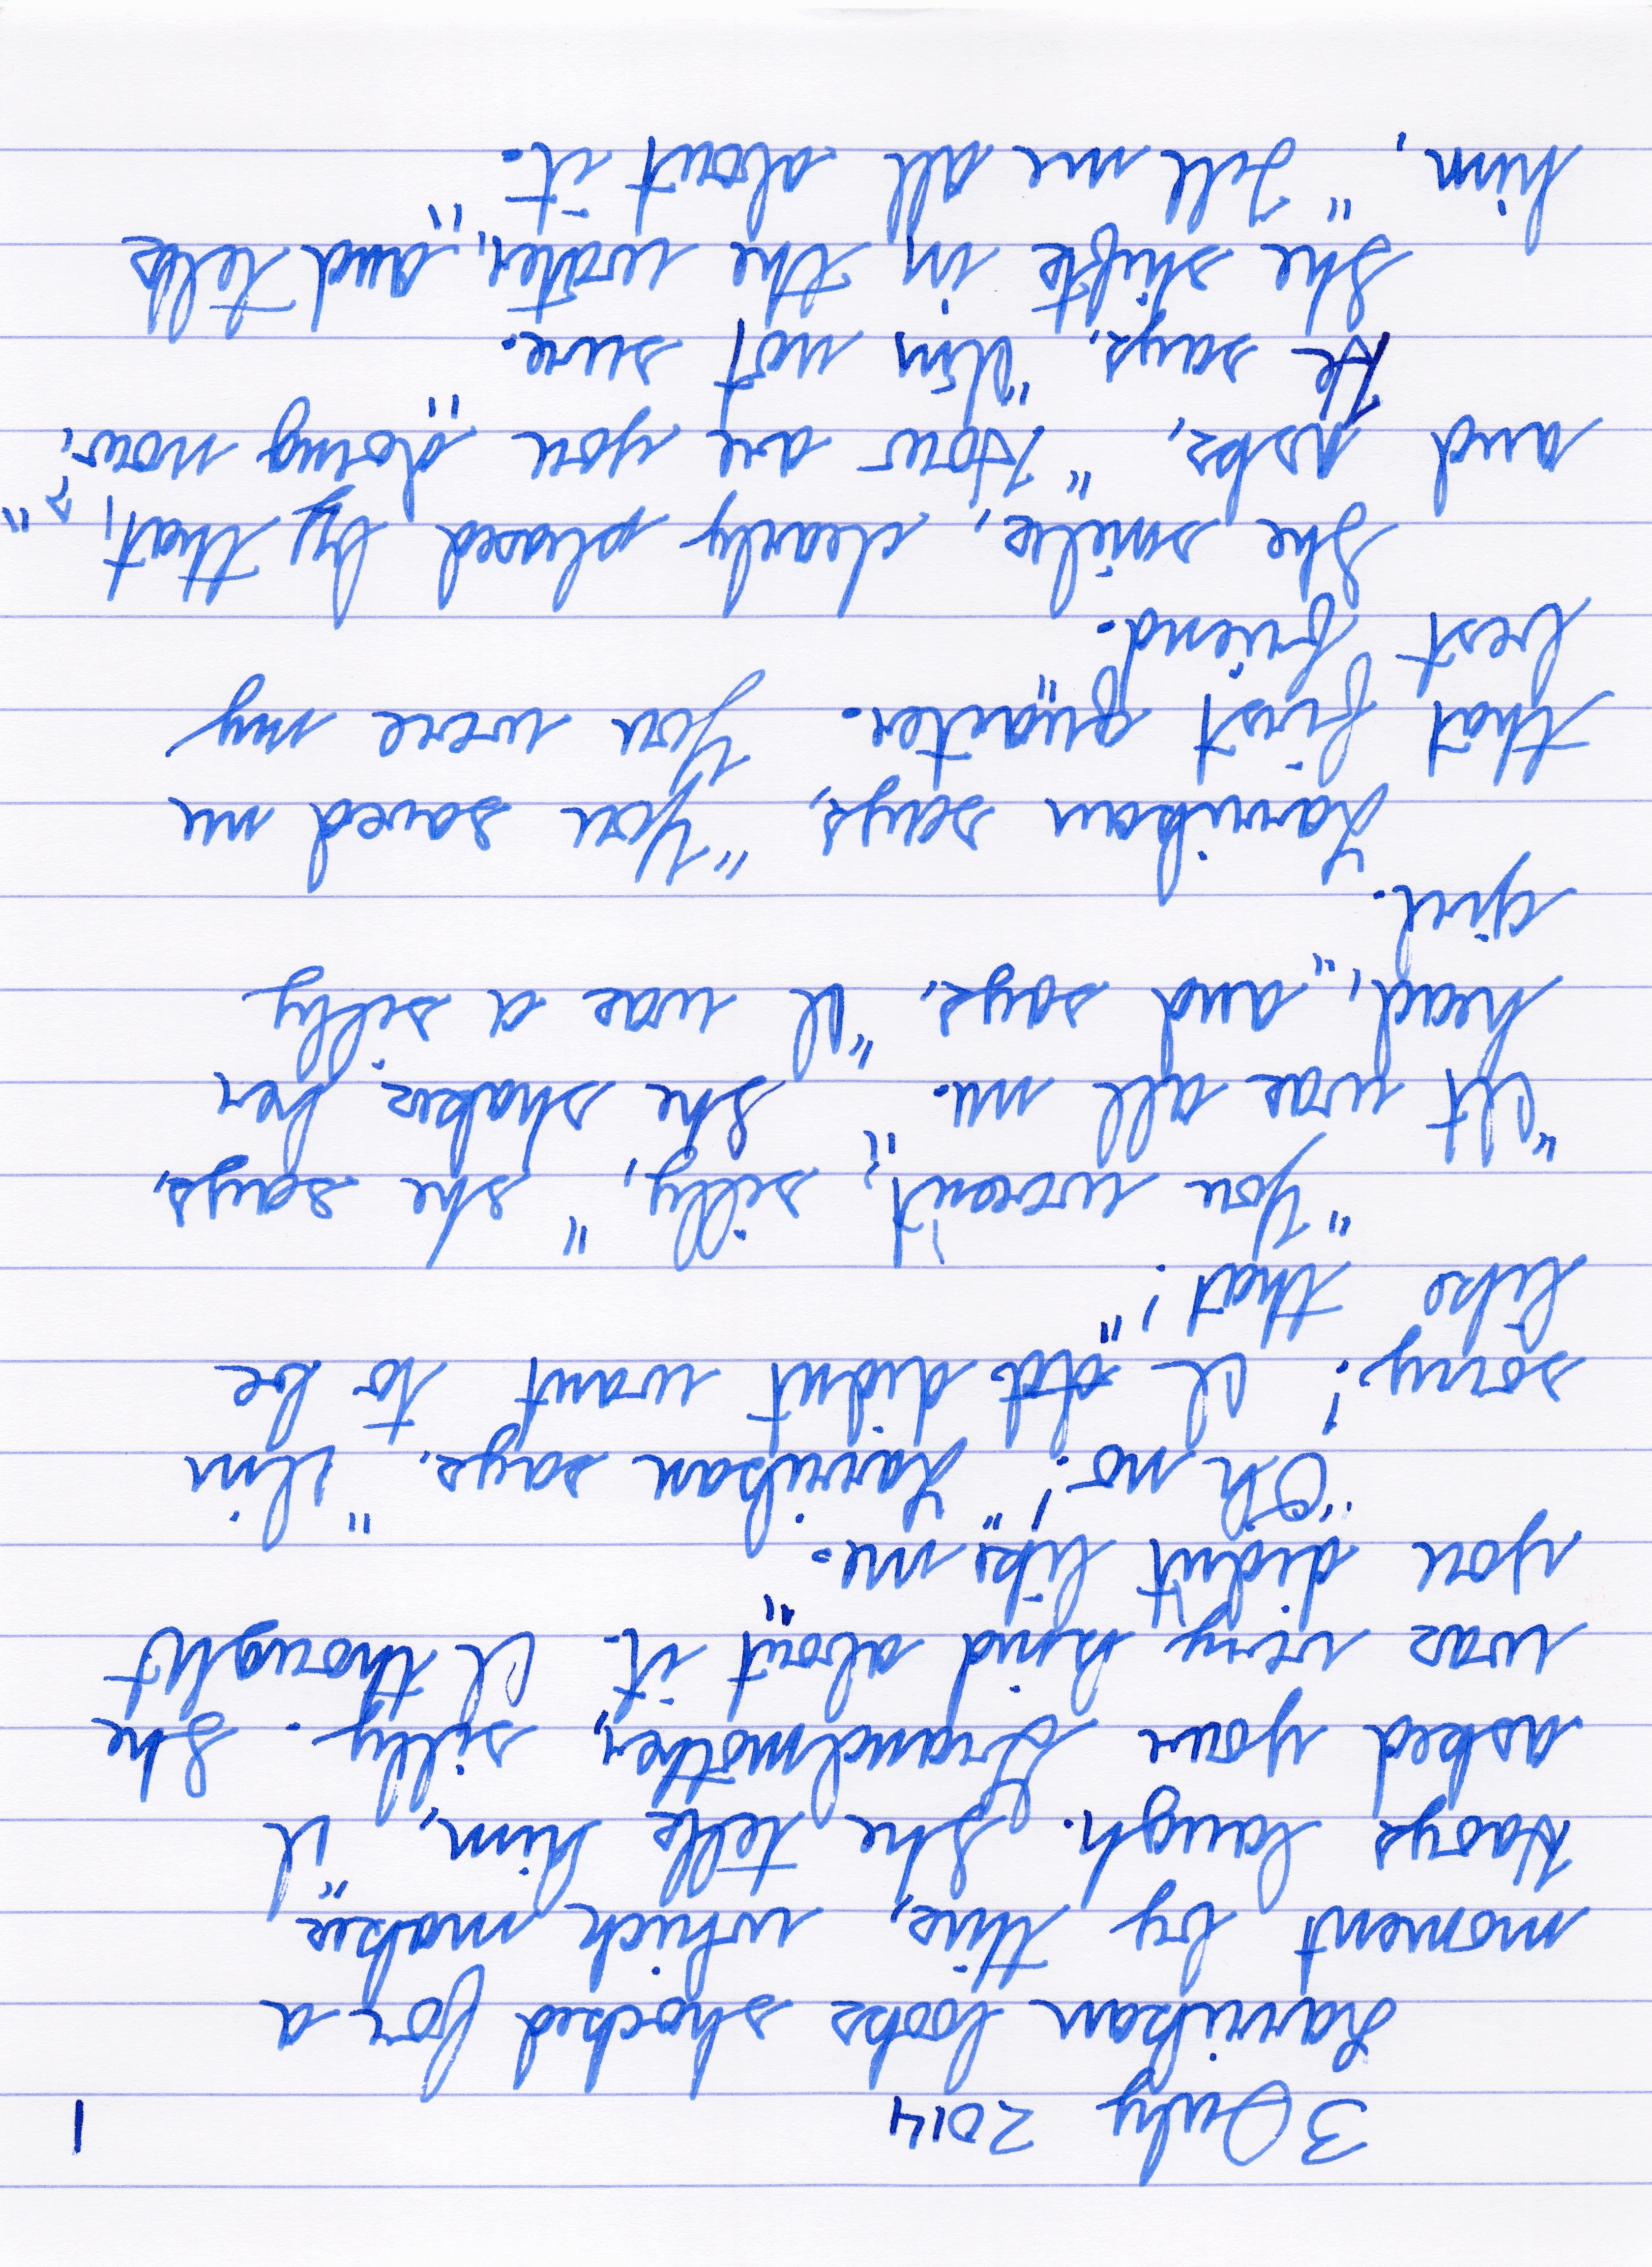 3 July 2014 1
Larrikan looks shocked for a
moment by this, which makes
Haoys laugh. She tells him, "I
asked your Grandmother, silly. She
was very kind about it. I thought
you didn't like me."
"Oh no!" Larrikan says. "I'm
sorry! I didnt want to be
like that!"
"You weren't, silly," she says,
"It was all me." She shakes her
head, and says, "I was a silly
girl."
Larrikan says, "You saved me
that first quarter. You were my
best friend."
She smiles, clearly pleased by that,
and asks, "How are you doing now?"
He says, "I'm not sure."
She shifts in the water, and tells
him, "Tell me all about it."